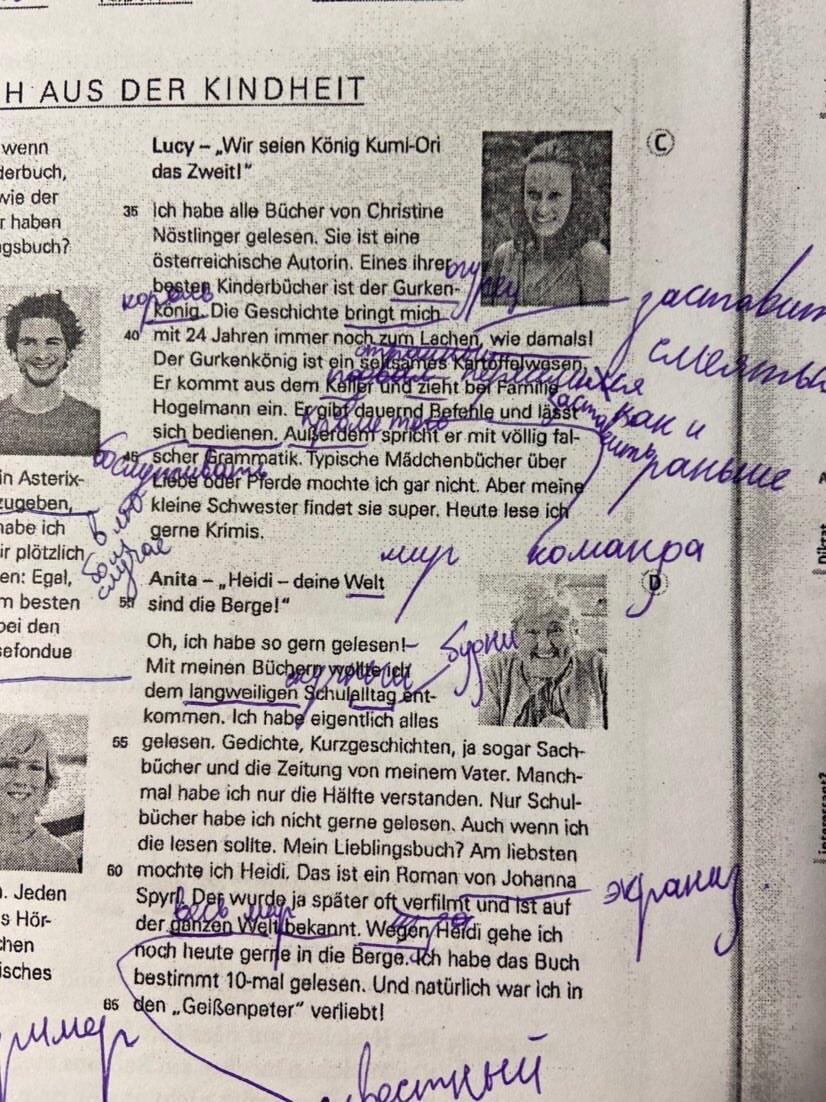 H AUS DER KINDHEIT
wenn
derbuch,
wie der
r haben
gsbuch?
in Asterix-
zugeben,
habe ich
ir plötzlich
en: Egal,
m besten
bei den
sefondue
. Jeden
s Hör-
chen
isches
Lucy – „Wir seien König Kumi-Ori
das Zweit!"
C
35 Ich habe alle Bücher von Christine
Nöstlinger gelesen. Sie ist eine
österreichische Autorin. Eines ihrer
besten Kinderbücher ist der Gurken-
könig. Die Geschichte bringt mich
40 mit 24 Jahren immer noch zum Lachen, wie damals!
Der Gurkenkönig ist ein seltsames Kartoffelwesen.
Er kommt aus dem Keller und zieht bei Familie
Hogelmann ein. Er gibt dauernd Befehle und lässt
sich bedienen. Außerdem spricht er mit völlig fal-
45 scher Grammatik. Typische Mädchenbücher über
Liebe oder Pferde mochte ich gar nicht. Aber meine
kleine Schwester findet sie super. Heute lese ich
gerne Krimis.
король
огурец
заставит
смеять
как и
раньше
команда
обслуживать
Кроме того
мир
Anita – „Heidi – deine Welt
sind die Berge!"
D
Oh, ich habe so gern gelesen!
Mit meinen Büchern wollte ich
dem langweiligen Schulalltag ent-
kommen. Ich habe eigentlich alles
55 gelesen. Gedichte, Kurzgeschichten, ja sogar Sach-
bücher und die Zeitung von meinem Vater. Manch-
mal habe ich nur die Hälfte verstanden. Nur Schul-
bücher habe ich nicht gerne gelesen. Auch wenn ich
die lesen sollte. Mein Lieblingsbuch? Am liebsten
60 mochte ich Heidi. Das ist ein Roman von Johanna
Spyri. Der wurde ja später oft verfilmt und ist auf
der ganzen Welt bekannt. Wegen Heidi gehe ich
noch heute gerne in die Berge. Ich habe das Buch
bestimmt 10-mal gelesen. Und natürlich war ich in
65 den „Geißenpeter" verliebt!
будни
весь мир
экраниз
вестный
Diktat
interessant?